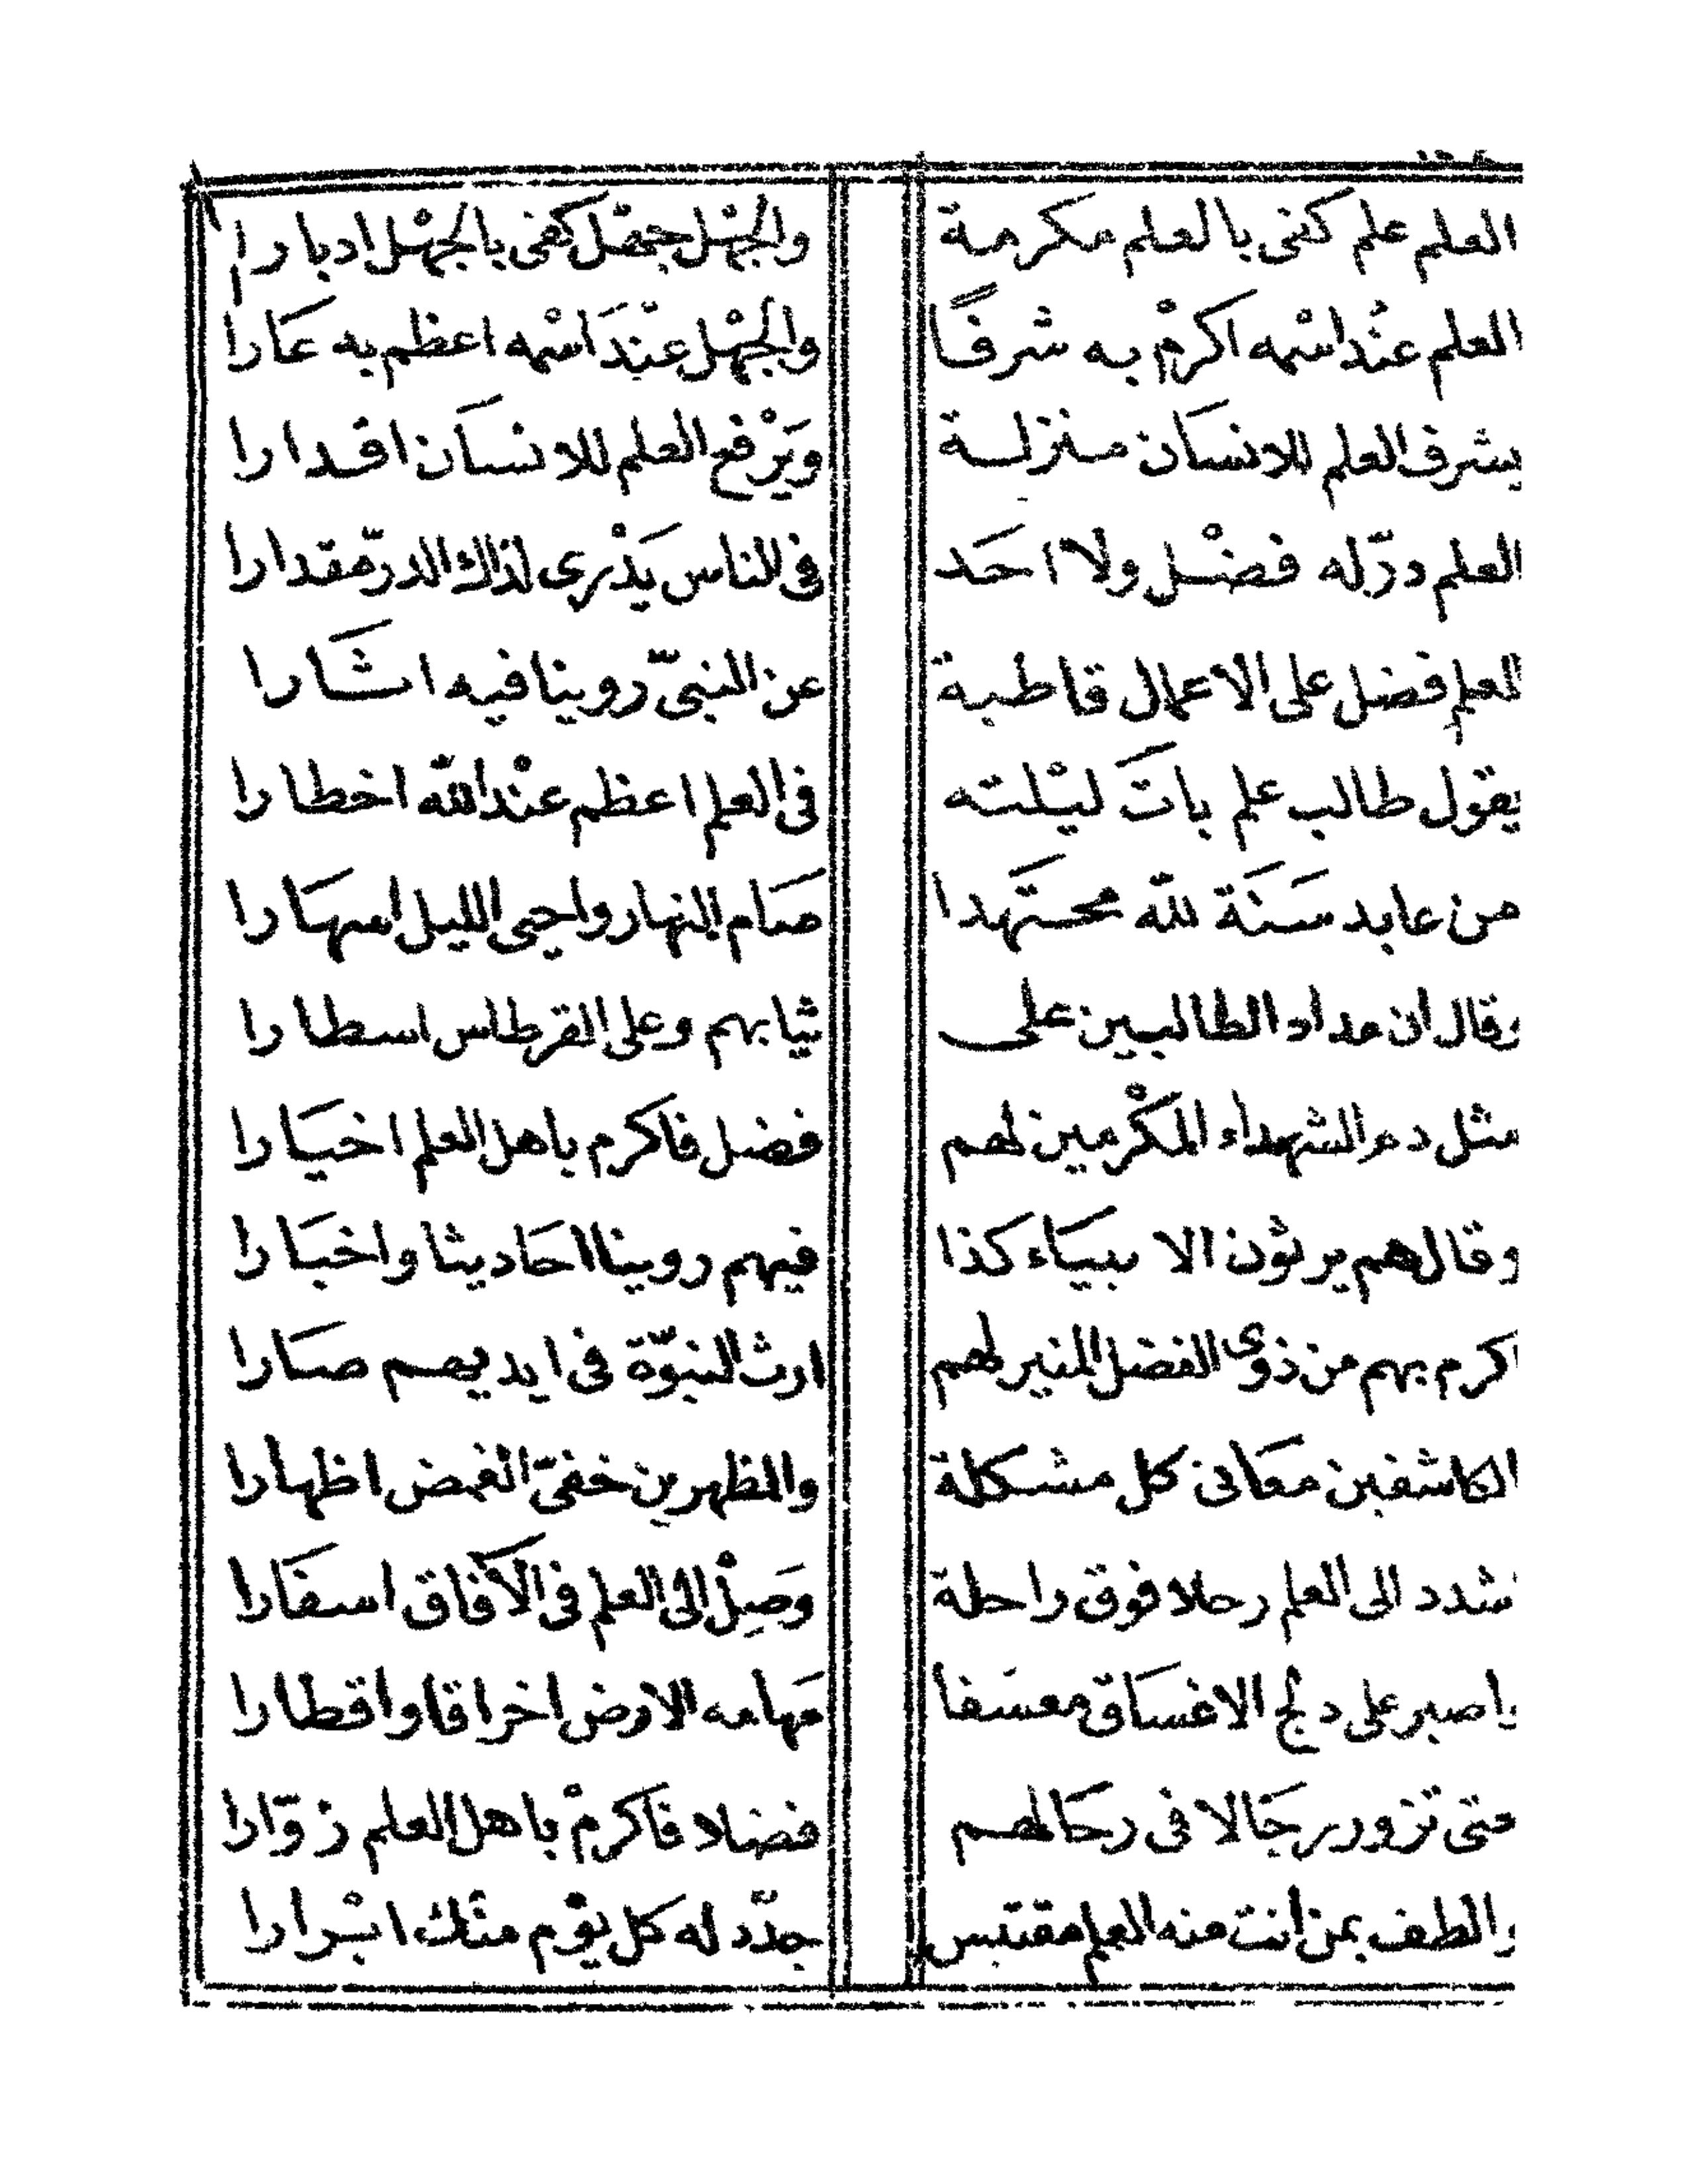 العلم علم كفى بالعلم مكرمة والجهْل جهْل كفى بالجهْل ادبارا
العلم عنْد اسْمه اكرمْ به شرفًا والجهْل عنْدَ اسْمه اعظم به عَارا
يشرف العلم للانسَان منزلة ويَرْفع العلم للانسَان اقدارا
العلم درّ له فضْل ولا احَد في الناس يَدْرى لذاك الدرّ مقدارا
العلم فضل على الاعمال قاطبة عن النبىّ روينا فيه اثَارا
يقول طالب علم باتَ ليْلته في العلم اعظم عنْد الله اخطارا
من عابد سَنَة لله مجتَهدا صَام النهار واحيى الليل اسهَارا
وقال ان مداد الطالبين على ثيابهم وعلى القرطاس اسطارا
مثل دم الشهداء المكْرمين لهم فضل فاكرم باهل العلم اخيَارا
وقال هم يرثون الانبيَاء كذا فيهم روينا احَاديثا واخبَارا
اكرم بهم من ذوى الفضل المنير لهم ارث النبوّة في ايديهم صَارا
الكاشفين معَانى كل مشكلة والمظهرين خفىّ الغمض اظهارا
شدد الى العلم رحلا فوق راحلة وَصِلْ الى العلم في الآفاق اسفَارا
واصبر على دلج الاغسَاق معسَفا مَهامه الارض اخراقا واقطارا
حتى تزور رجَالا في رحَالهم فضلا فاكرمْ باهل العلم زوّارا
والطف بمن أنت منه العلم مقتبس جدّد له كل يوْم منْك ابْرارا